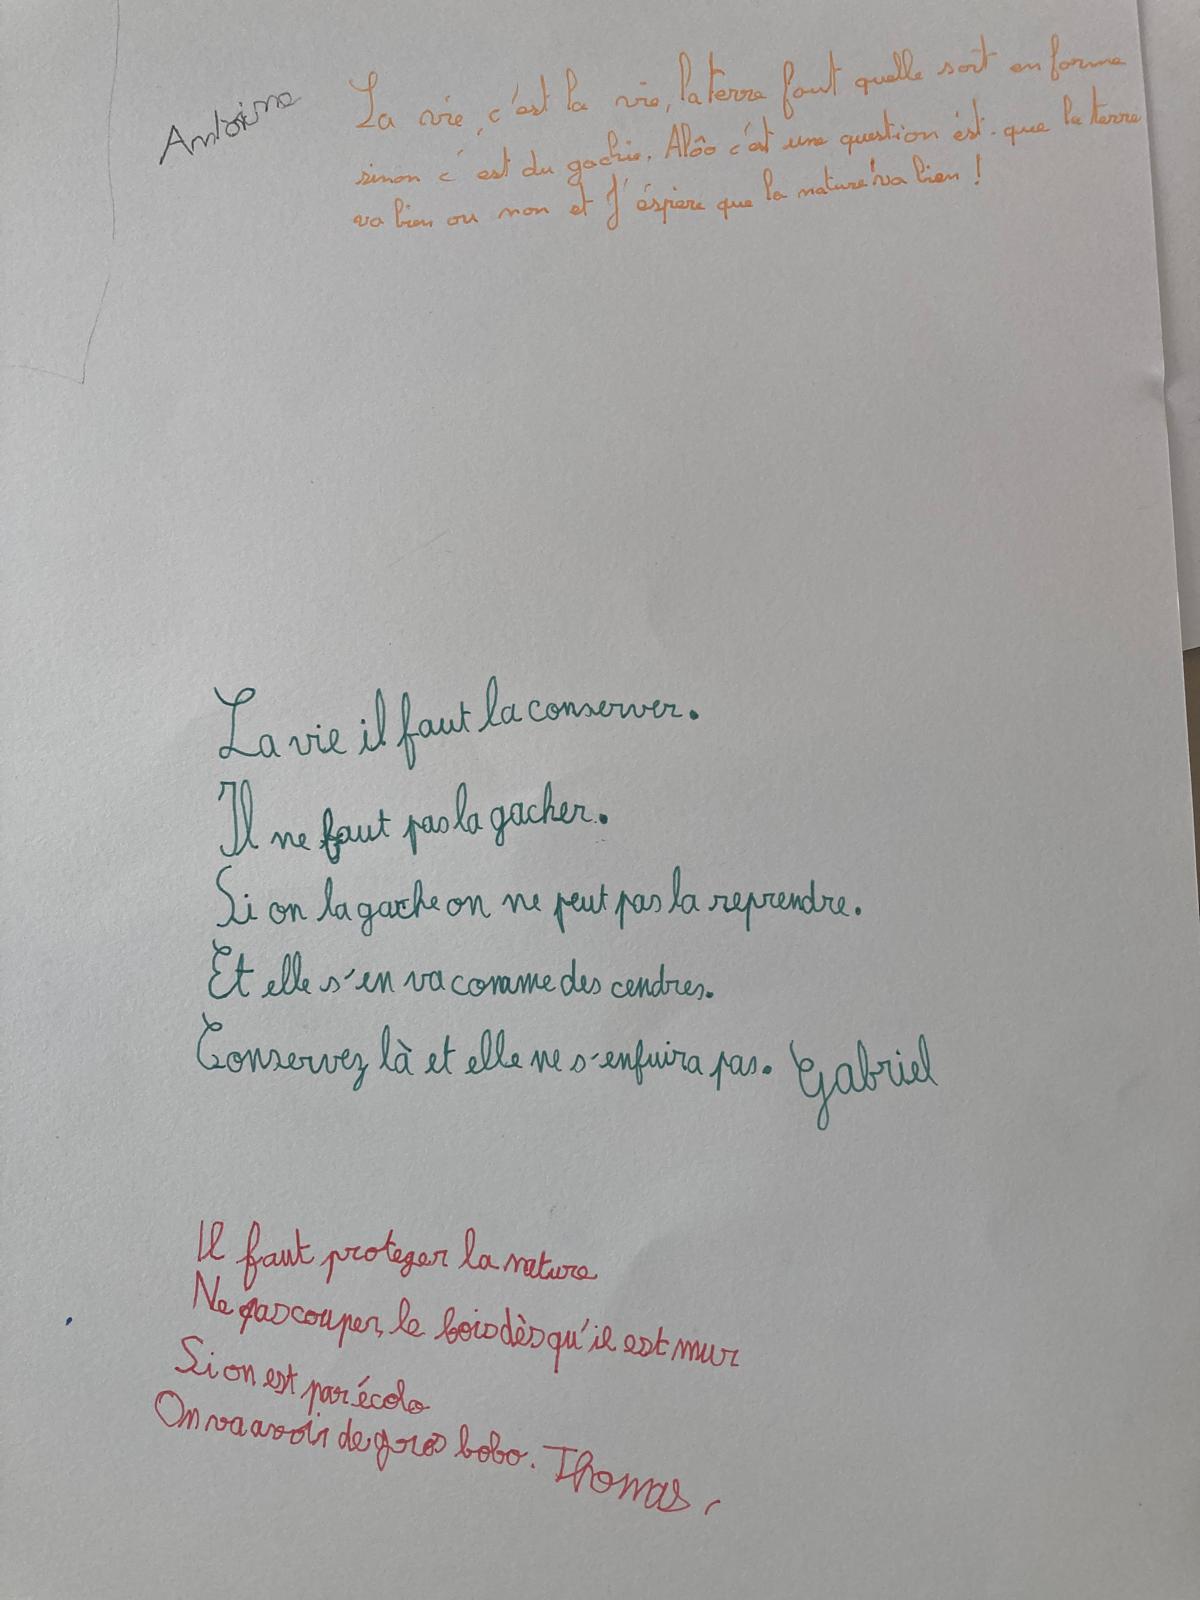 Antoine
La vie, c'est la vie, la terre faut quelle soit en forme
sinon c'est du gachie. Alôo c'est une question est-que la terre
va bien ou non et J'éspère que la nature va bien !
La vie il faut la conserver.
Il ne faut pas la gacher.
Si on la gache on ne peut pas la reprendre.
Et elle s'en va comme des cendres.
Conservez là et elle ne s'enfuira pas. Gabriel
Il faut proteger la nature
Ne pas couper le bois dès qu'il est mur
Si on est par écolo
On va avoir de gros bobo. Thomas.